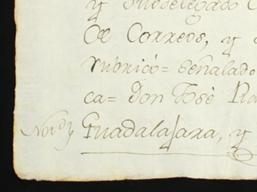 y Subdelegado
De Correos, y
rubricó= señalado
ca= don José
Guadalaxara, y